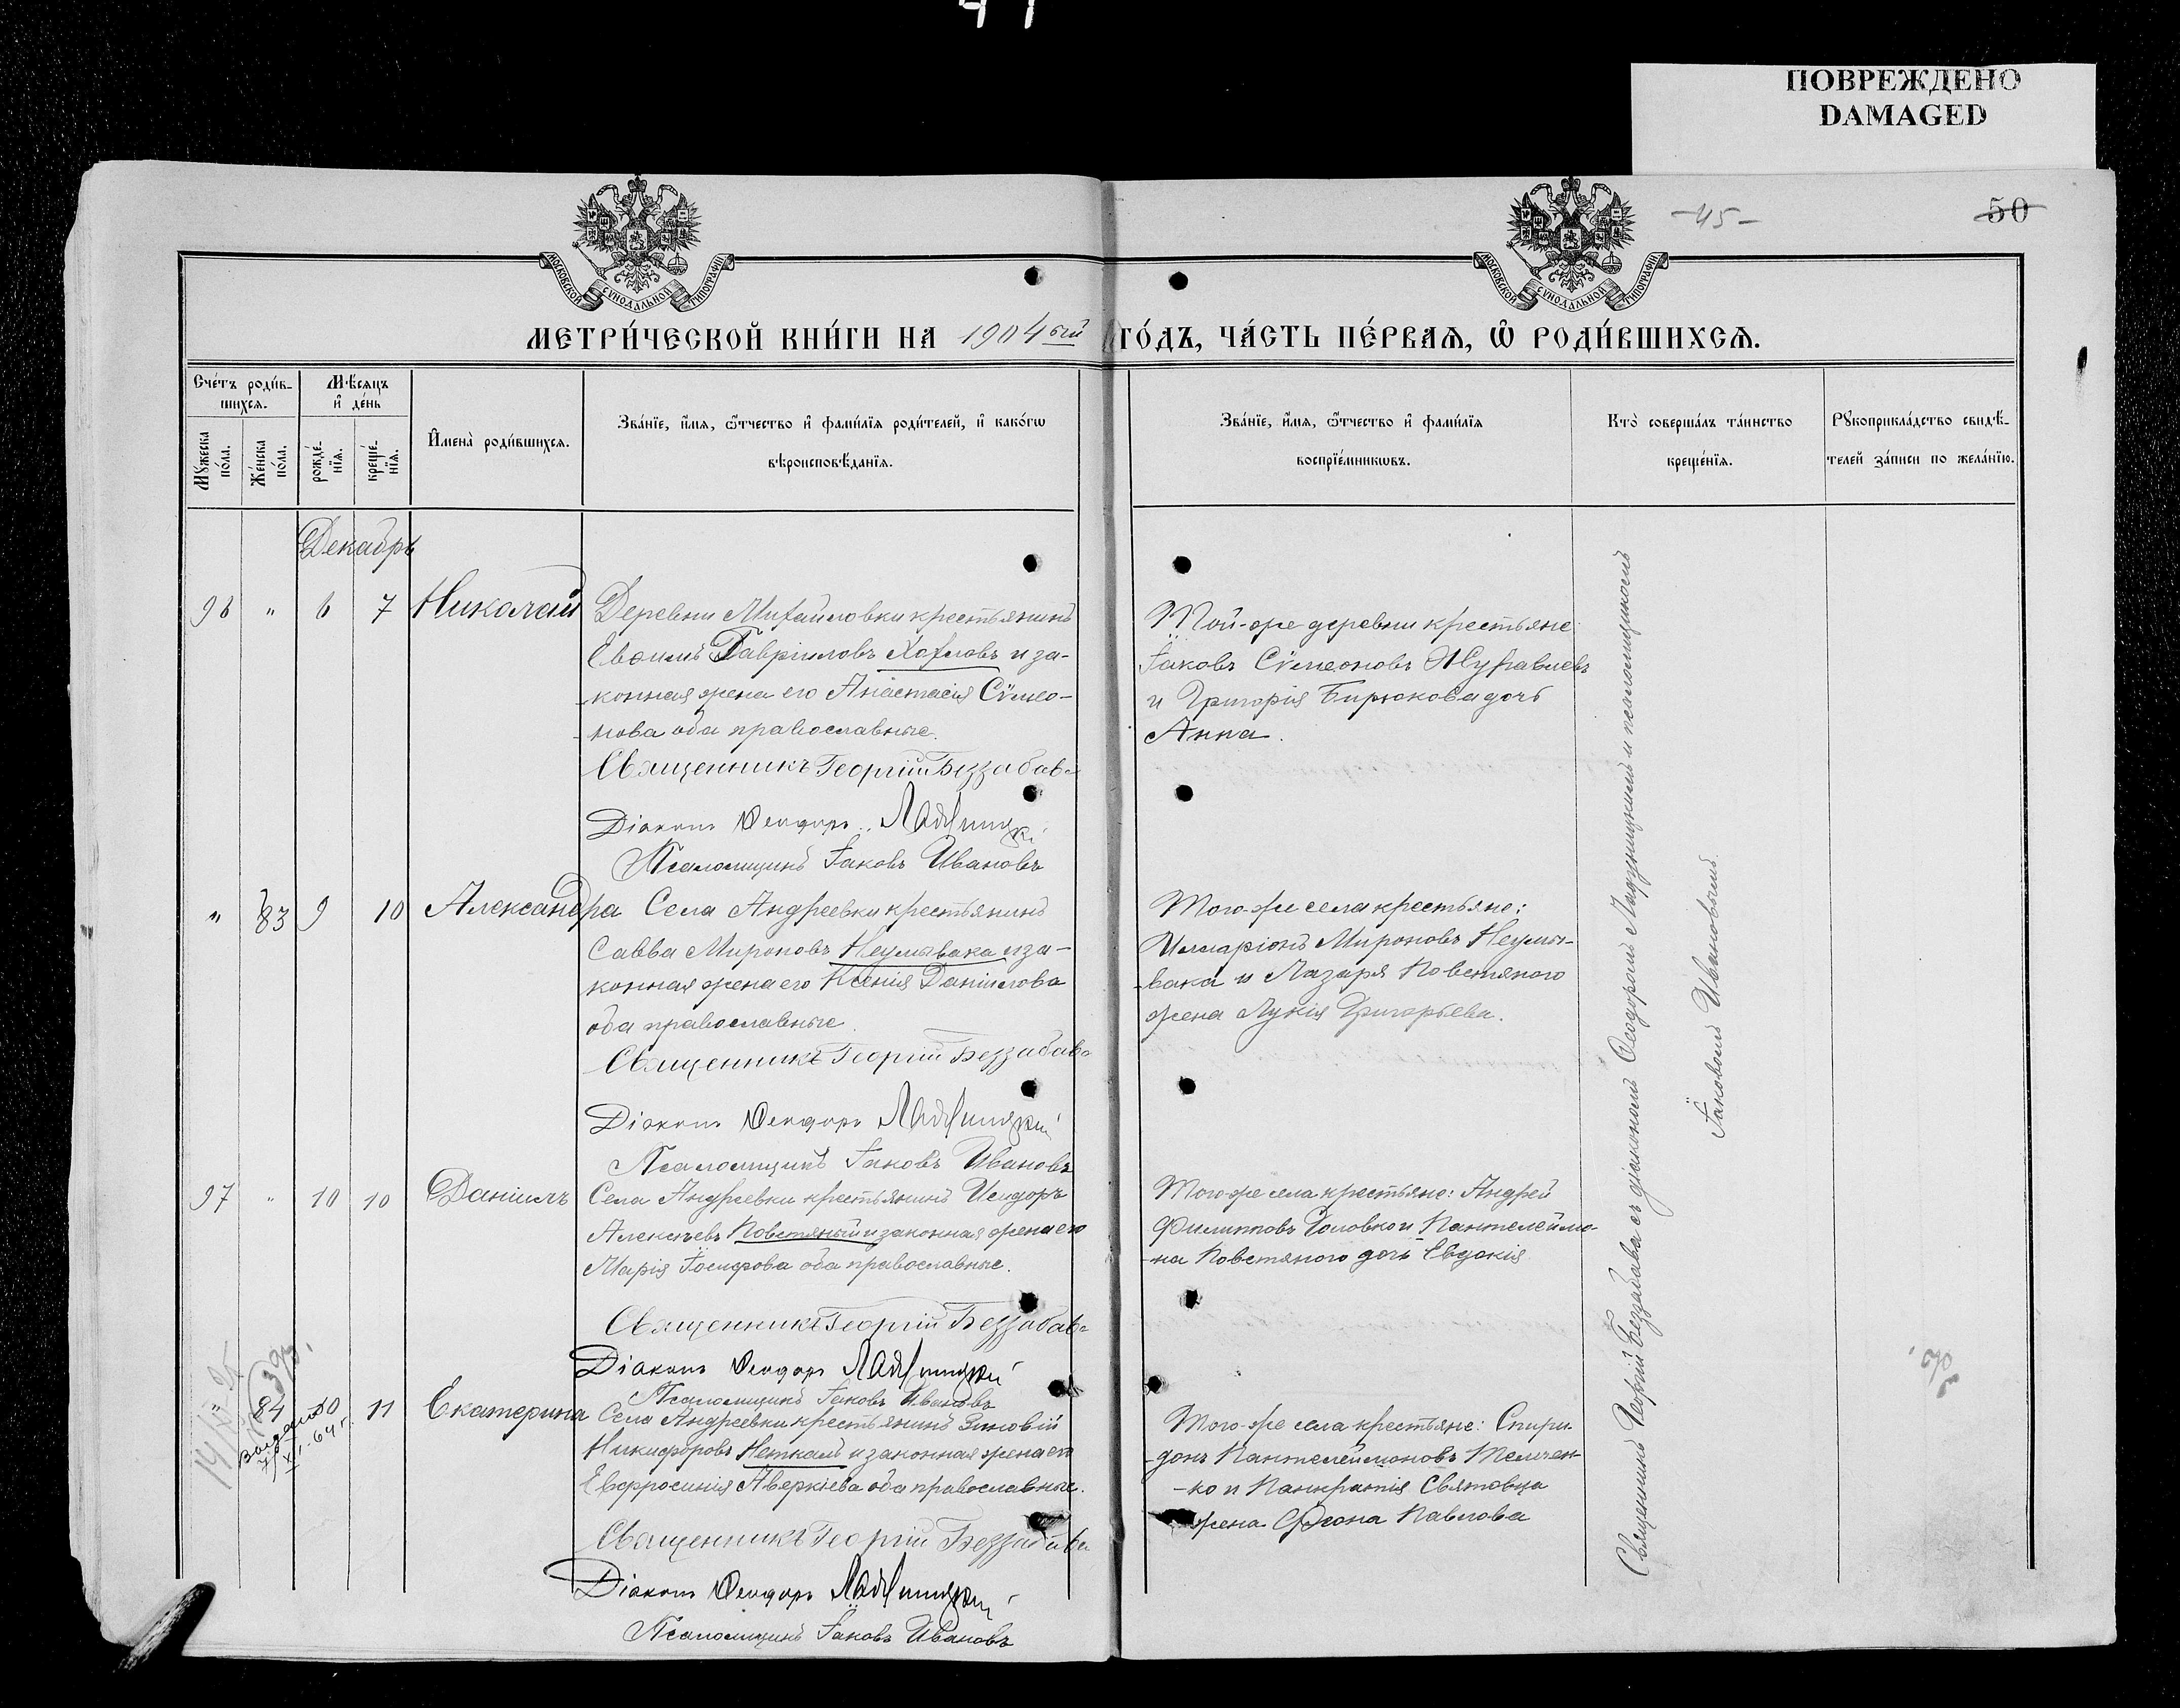 ПОВРЕЖДЕНО
DAMAGED
-45-
50
МОСКОВСКОЙ СѴНОДАЛЬНОЙ ТИПОГРАФІИ
МОСКОВСКОЙ СѴНОДАЛЬНОЙ ТИПОГРАФІИ
МЕТРИ́ЧЕСКОЙ КНИ́ГИ НА 1904 ый ГО́ДЪ, ЧА́СТЬ ПЕ́РВАѦ, Ѡ҆ РОДИ́ВШИХСѦ.
Сче́тъ роди́в-
шихсѧ.
Мꙋ́жеска по́ла.
Же́нска по́ла.
Мѣ́сѧцъ и҆ де́нь
рожде́-нїѧ.
креще́-нїѧ.
И҆мена̀ роди́вшихсѧ.
Зва́нїе, и҆́мѧ, ѻ҆́тчество и҆ фами́лїѧ роди́телей, и҆ како́гѡ
вѣроисповѣ́данїѧ.
Зва́нїе, и҆́мѧ, ѻ҆́тчество и҆ фами́лїѧ
воспрїе́мникѡвъ.
Кто̀ соверша́лъ та́инство
креще́нїѧ.
Рꙋкоприкла́дство свидѣ́-
телей за́писи по жела́нїю.
Декабрь
96 " 6 7 Николай
Деревни Михайловки крестьянинъ
Евѳимъ Гавріиловъ Хохловъ и за-
конная жена его Анастасія Сѷмео-
нова оба православные.
Священникъ Георгій Беззабава
Діаконъ Ѳеодоръ
Псаломщикъ Іаковъ Ивановъ
Той-же деревни крестьяне
Іаковъ Сѷмеоновъ Журавлевъ
и Григорія Бирюкова дочь
Анна.
" 83 9 10 Александра
Села Андреевки крестьянинъ
Савва Мироновъ Неумывака и за-
конная жена его Ксенія Даніилова
оба православные.
Священникъ Георгій Беззабава
Діаконъ Ѳеодоръ
Псаломщикъ Іаковъ Ивановъ
Того-же села крестьяне:
Илларіонъ Мироновъ Неумы-
вака и Лазаря Повстяного
жена Лукія Григорьева.
97 " 10 10 Даніилъ
Села Андреевки крестьянинъ Исидоръ
Алексѣевъ Повстяный и законная жена его
Марія Іосифова оба православные.
Священникъ Георгій Беззабава
Діаконъ Ѳеодоръ
Псаломщикъ Іаковъ Ивановъ
Того-же села крестьяне: Андрей
Филипповъ Головко и Пантелеймо-
на Повстяного дочь Евдокія
" 84 10 11 Екатерина
Села Андреевки крестьянинъ Зиновій
Никифоровъ Неткалъ и законная жена его
Евфросинія Аверкіева оба православные.
Священникъ Георгій Беззабава
Діаконъ Ѳеодоръ
Псаломщикъ Іаковъ Ивановъ
Того-же села крестьяне: Спири-
донъ Пантелеймоновъ Темчен-
ко и Панкратія Святовца
жена Ѳеона Павлова
Священникъ Георгій Беззабава съ діакономъ Ѳеодоромъ и псаломщикомъ
Іаковомъ Ивановымъ.